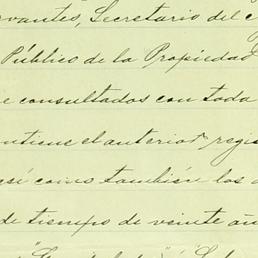 rvantes, Secretario del c
Público de la Propiedad
e consultados con toda
ntiene el anterior regis
así como también los
de tiempo de veinte añ